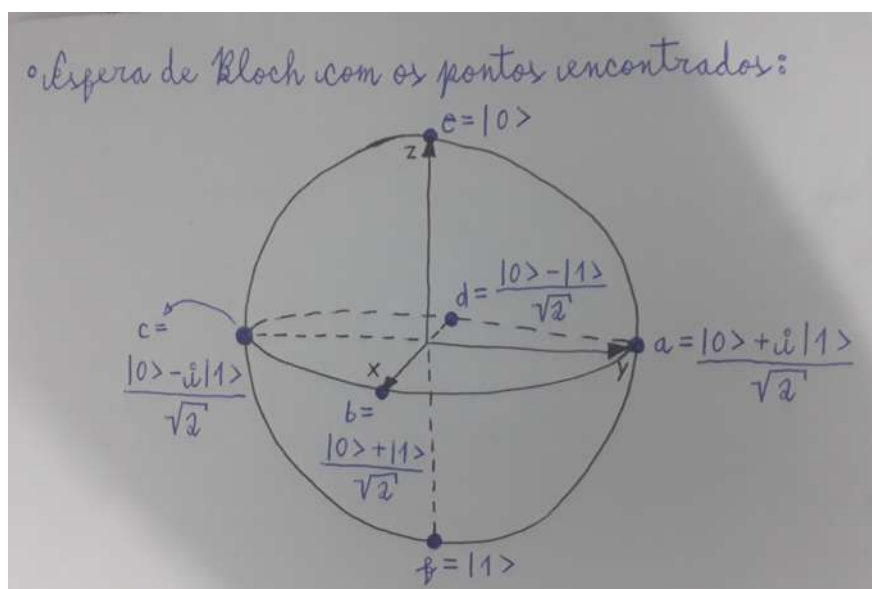 • Esfera de Bloch com os pontos encontrados:
e = |0>
z
d = |0> - |1>
√2
c =
a = |0> + i |1>
√2
|0> - i |1>
√2
x
y
b =
|0> + |1>
√2
f = |1>